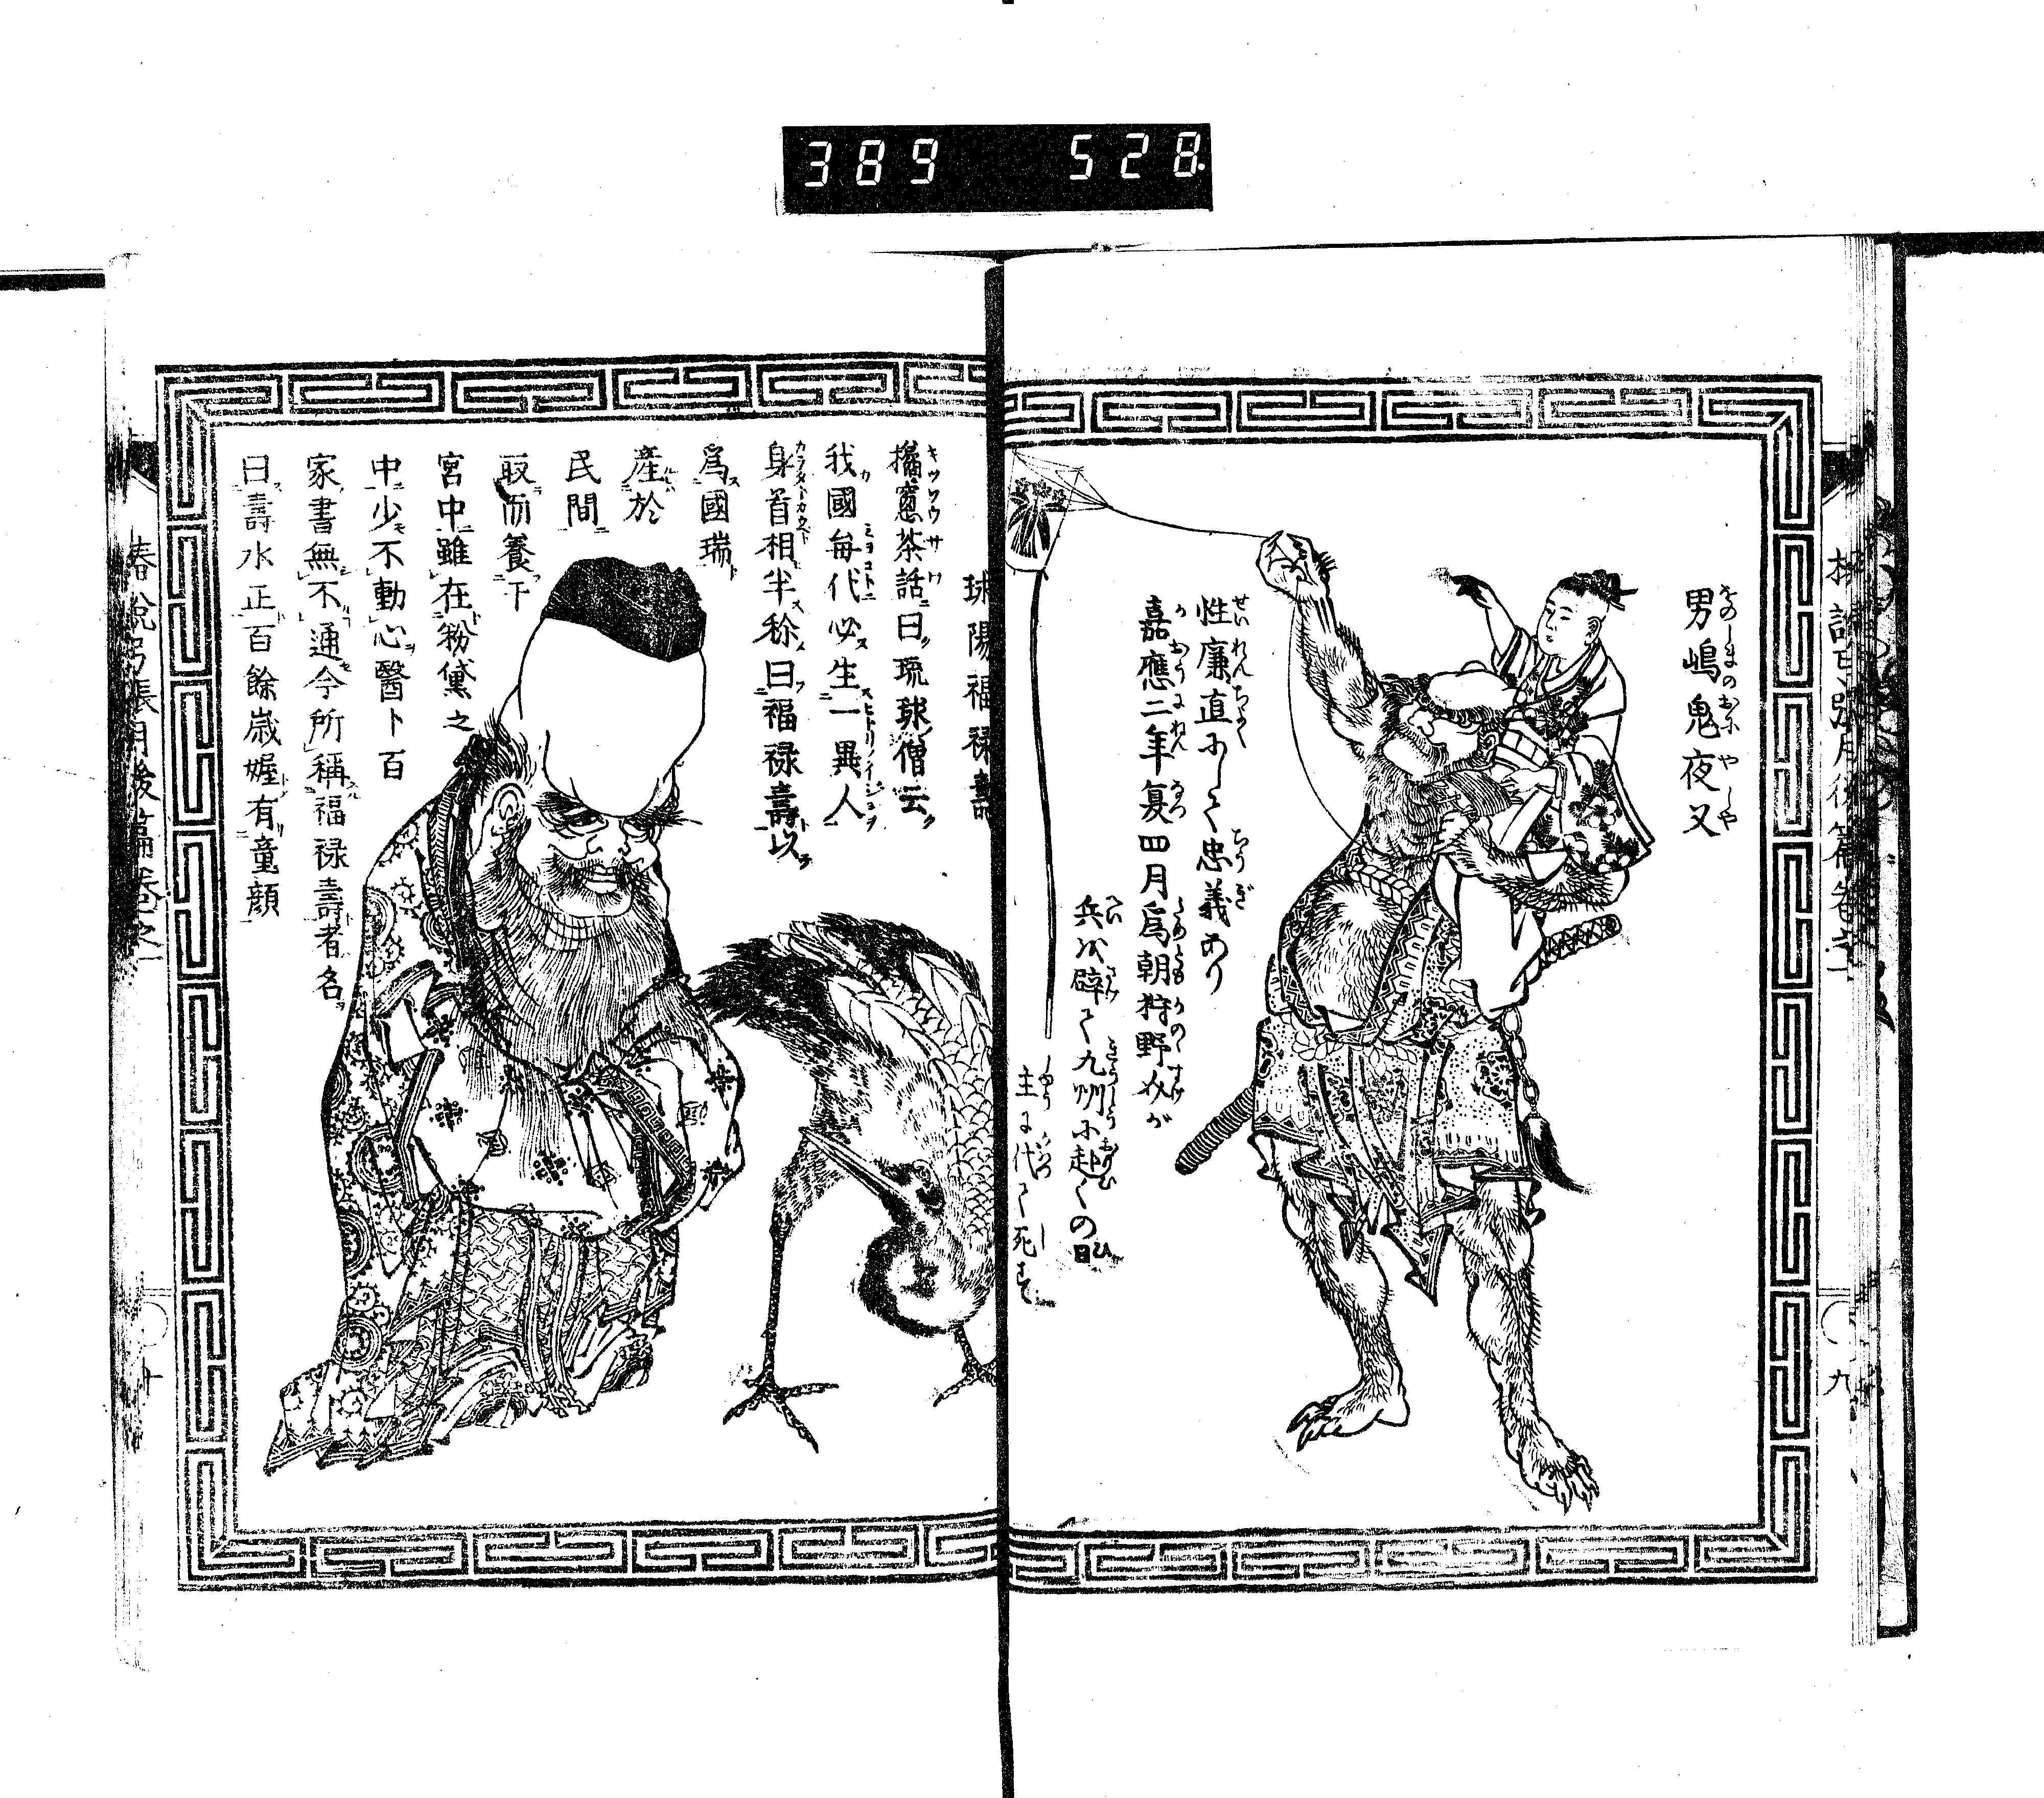 389 528
男嶋鬼夜叉
性廉直にして忠義あり
嘉應二年夏四月爲朝狩野介が
兵を辟て九州に赴くの日
主に代て死す
九
球陽福禄壽
橘窻茶話曰琉球僧云
我國毎代必生一異人
身首相半称曰福禄壽以
爲國瑞
産於
民間
取而養于
宮中雖在粉黛之
中少不動心醫卜百
家書無不通今所稱福禄壽者名
曰壽水正百餘歳媉有童顔
椿説弓張月後篇巻之一
十